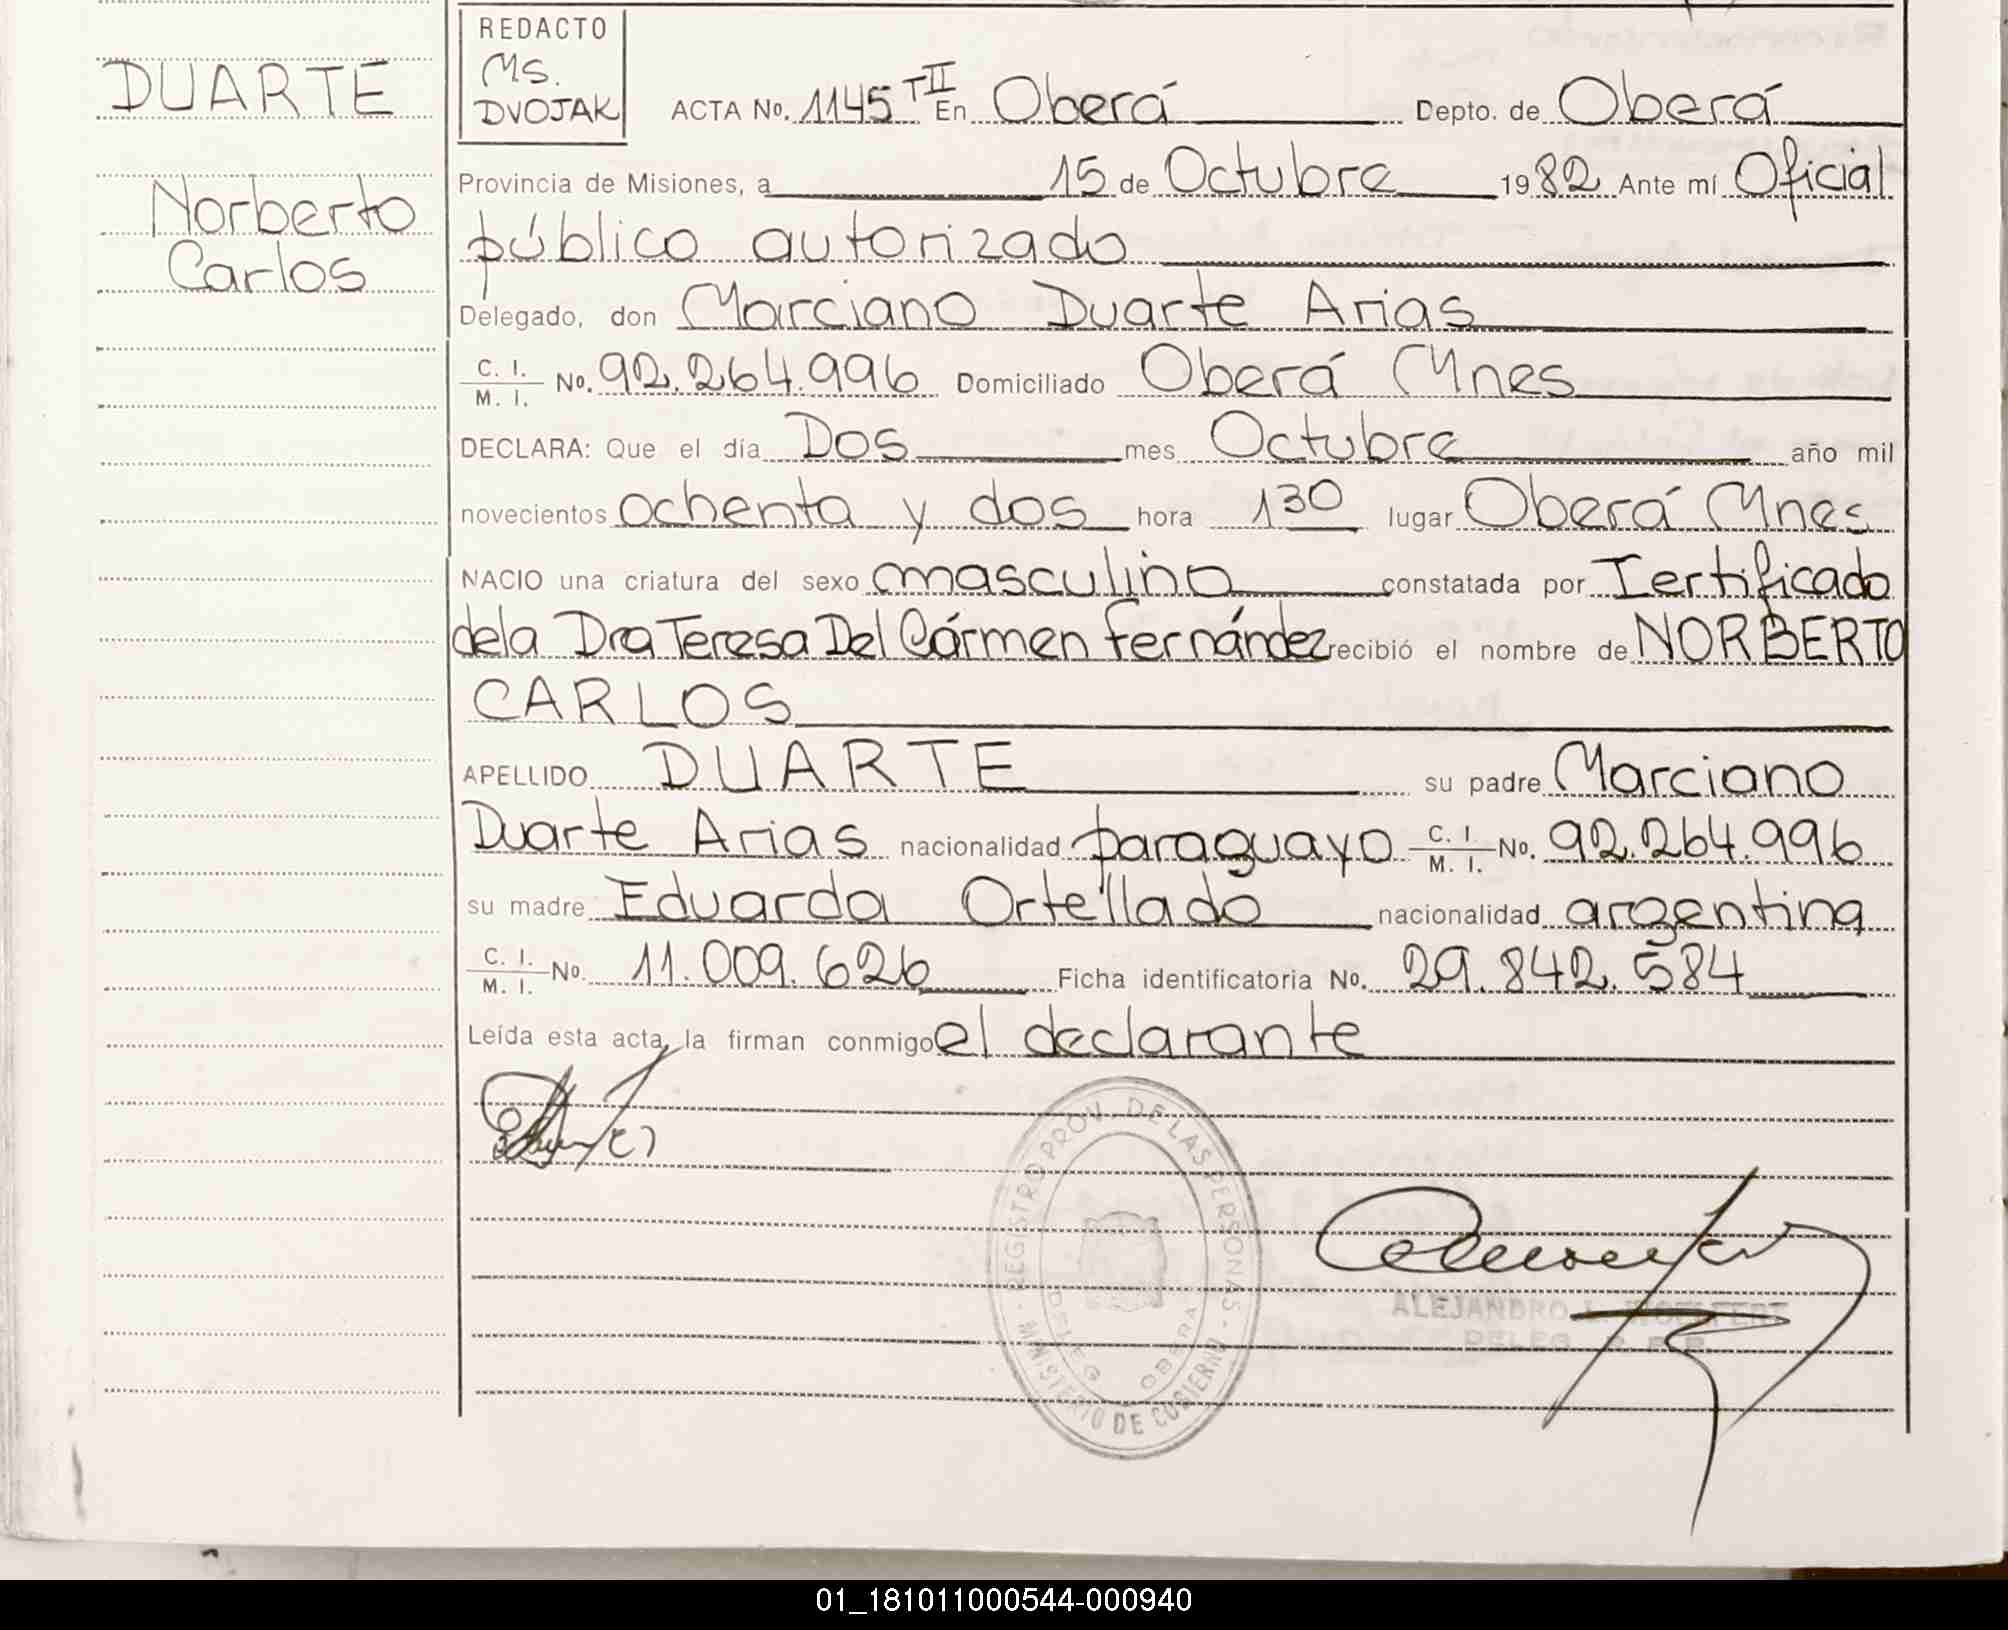 DUARTE
Norberto
Carlos
REDACTO
MS.
DVOJAK
ACTA No. 1145 TII En Oberá Depto. de Oberá
Provincia de Misiones, a 15 de Octubre 1982 Ante mí Oficial
público autorizado
Delegado, don Marciano Duarte Arias
C. I. M. I. No. 92.264.996 Domiciliado Oberá Mnes
DECLARA: Que el día Dos mes Octubre año mil
novecientos ochenta y dos hora 1 30 lugar Oberá Mnes
NACIO una criatura del sexo masculino constatada por Certificado
dela Dra Teresa Del Cármen Fernández recibió el nombre de NORBERTO
CARLOS
APELLIDO DUARTE su padre Marciano
Duarte Arias nacionalidad paraguayo C. I. M. I. No. 92.264.996
su madre Eduarda Ortellado nacionalidad argentina
C. I. M. I. No. 11.009.626 Ficha identificatoria No. 29.842.584
Leída esta acta, la firman conmigo el declarante
REGISTRO PROV. DE LAS PERSONAS - MINISTERIO DE GOBIERNO
DELEG OBERA
ALEJANDRO
DELEG.
01_181011000544-000940